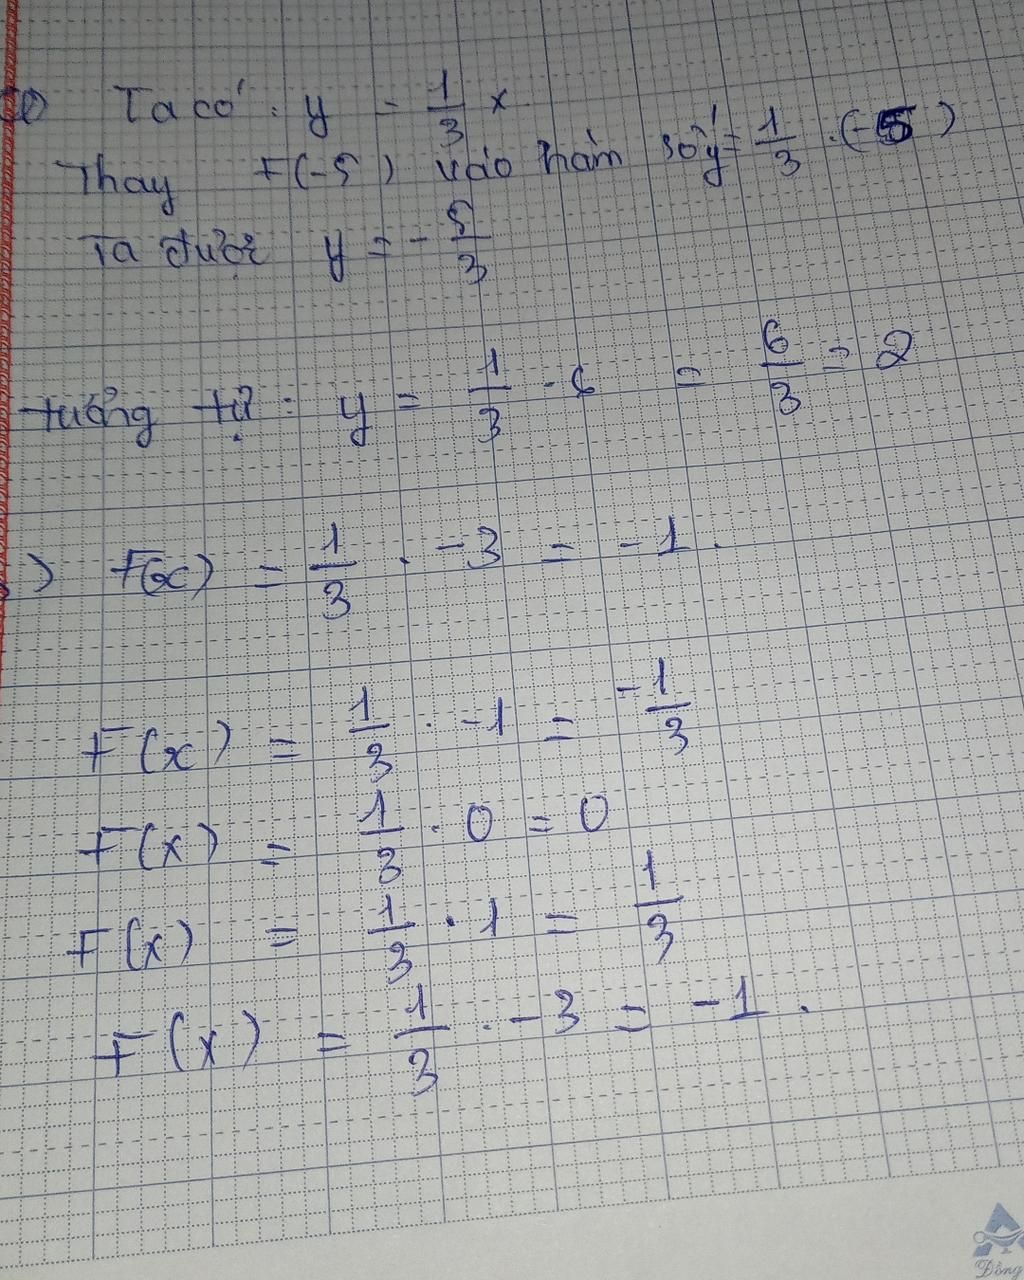 Ta có: y = 1/3 x
Thay F(-5) vào hàm số y = 1/3 . (-5)
Ta được y = - 5/3
tương tự: y = 1/3 . 6 = 6/3 = 2
) F(x) = 1/3 . -3 = -1.
F(x) = 1/3 . -1 = -1/3
F(x) = 1/3 . 0 = 0
F(x) = 1/3 . 1 = 1/3
F(x) = 1/3 . -3 = -1.
Đông